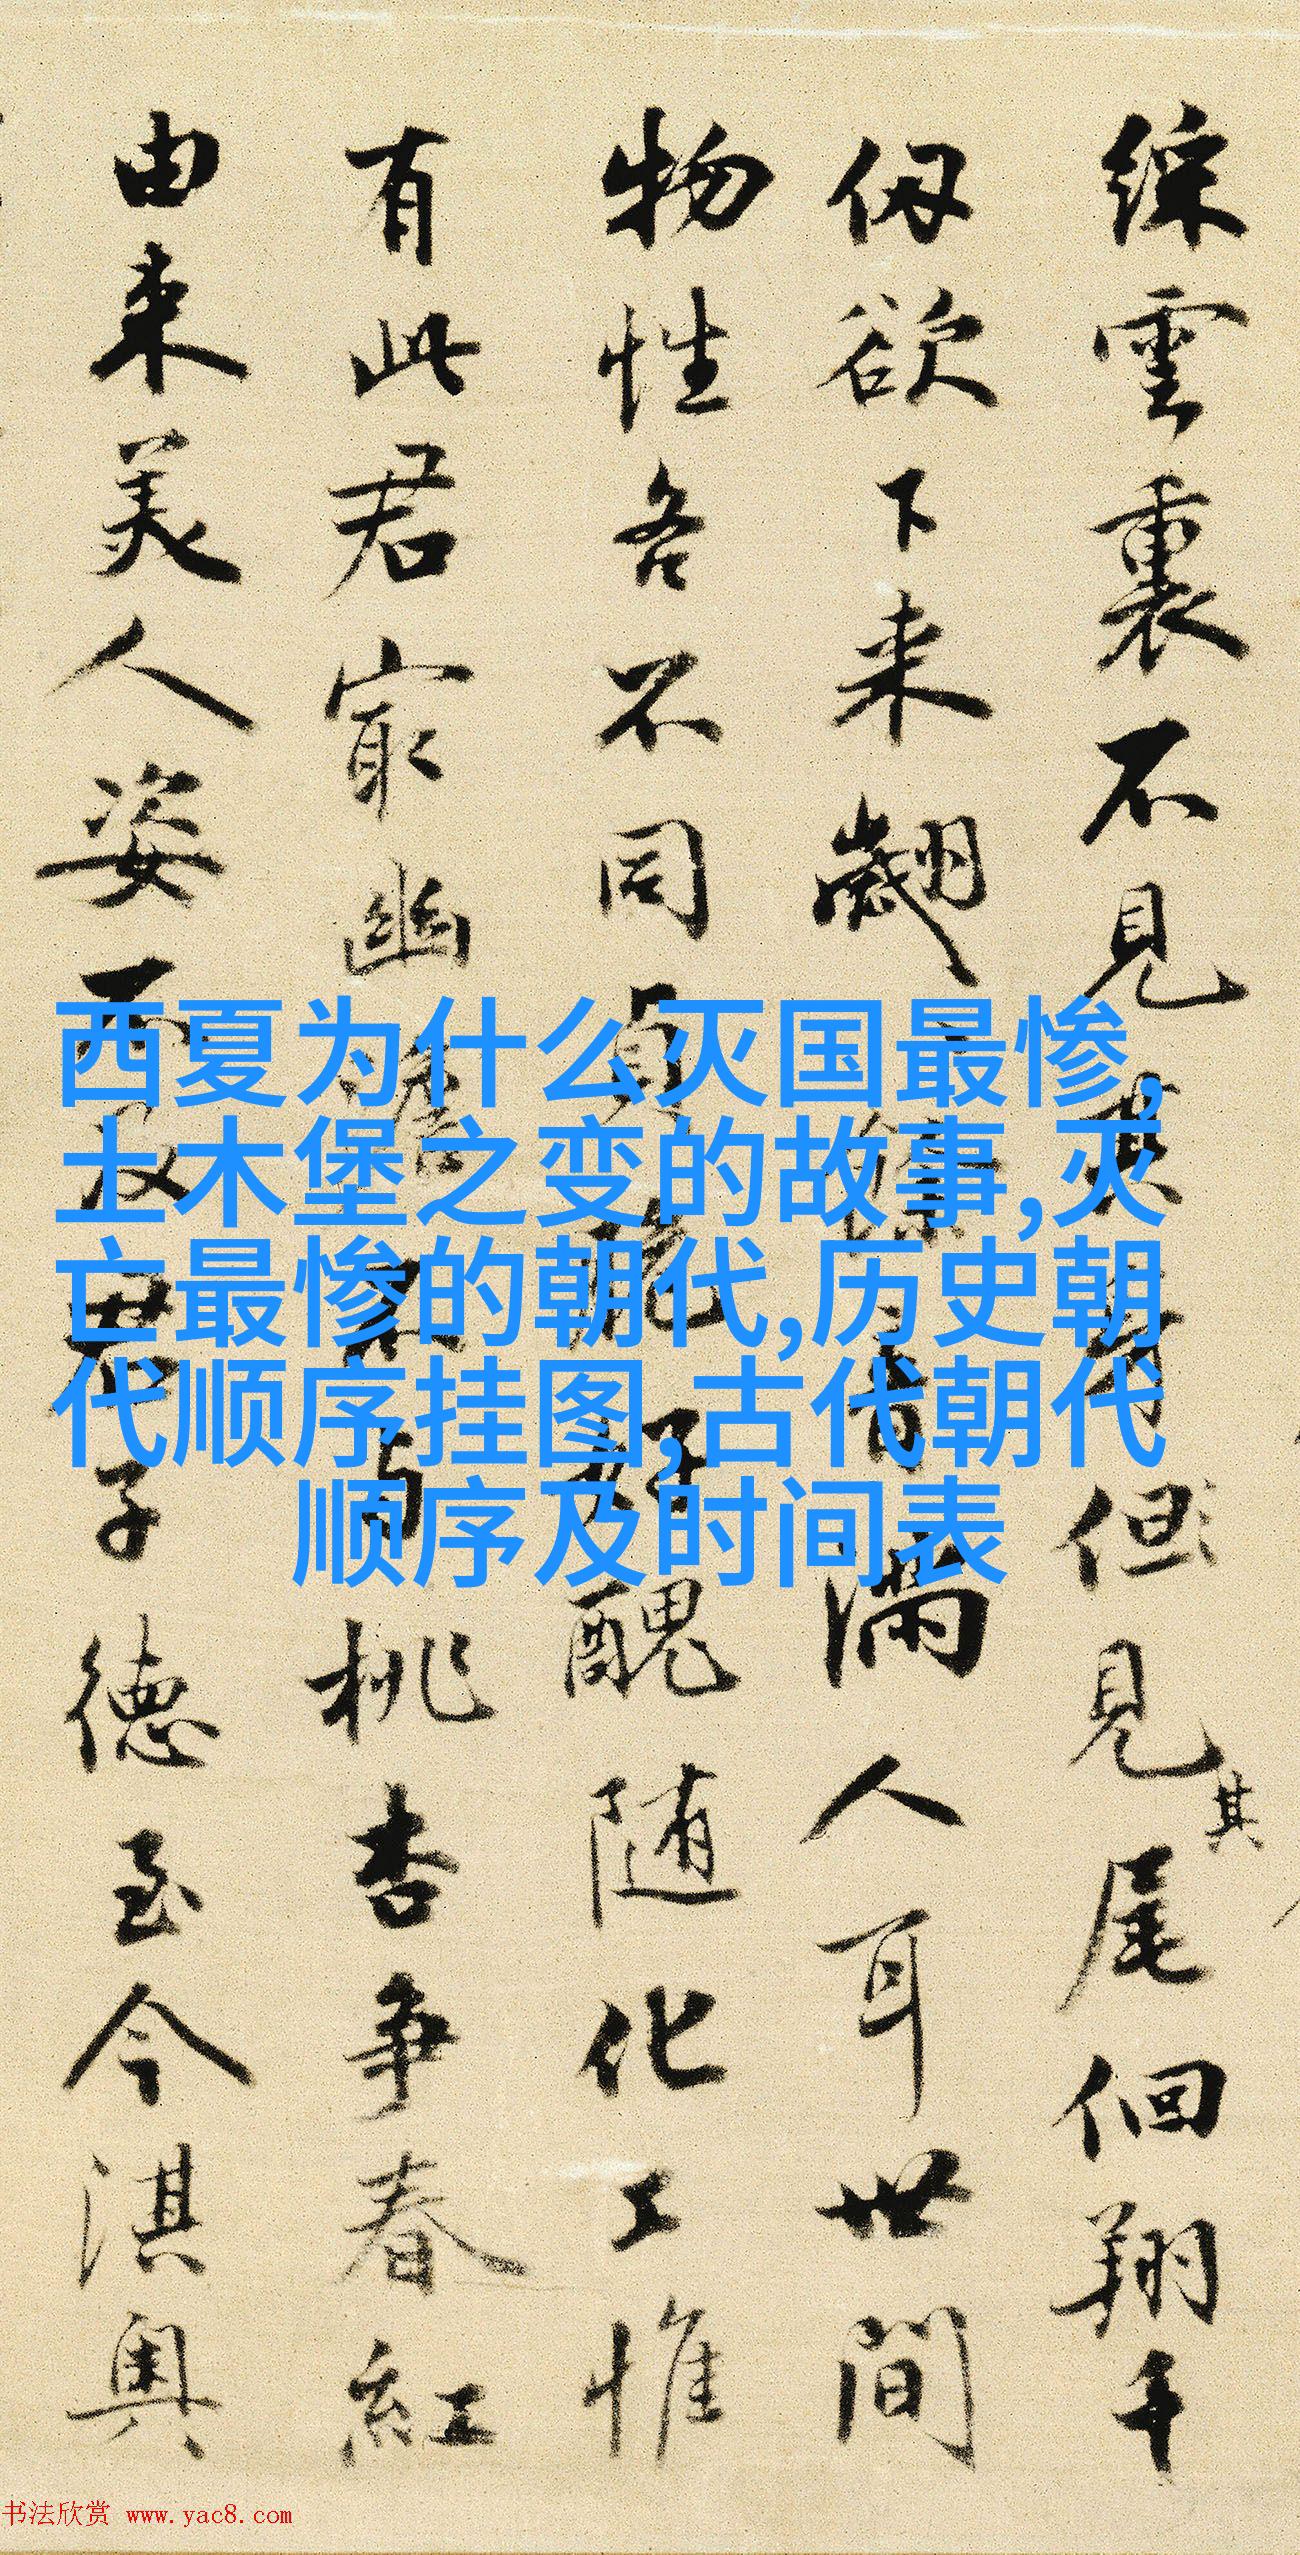 綵雲裏不見其身但見其尾佪翔千
仞欲下来翽餘音滿人耳世間
物性各不同貞脆好醜随化工惟
有此君冣幽與桃杏争春紅
由来美人姿不及君子德至今淇奥
西夏为什么灭国最惨,
土木堡之变的故事,灭
亡最惨的朝代,历史朝
代顺序挂图,古代朝代
顺序及时间表
书法欣赏 www.yac8.com